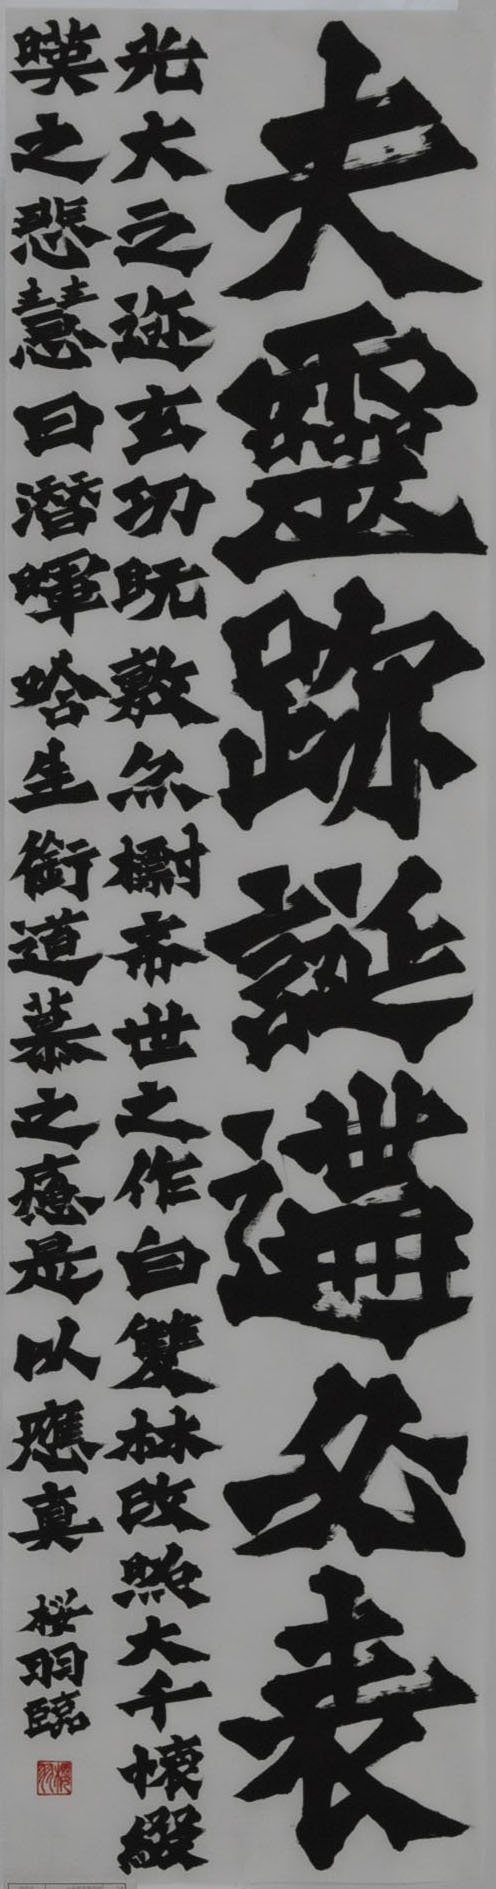 夫靈跡誕遘必表
光大之迹玄功既敷亦標希世之作自雙林改照大千懷綴
暎之悲慧日潛暉唅生銜道慕之痛是以應真
桜羽臨